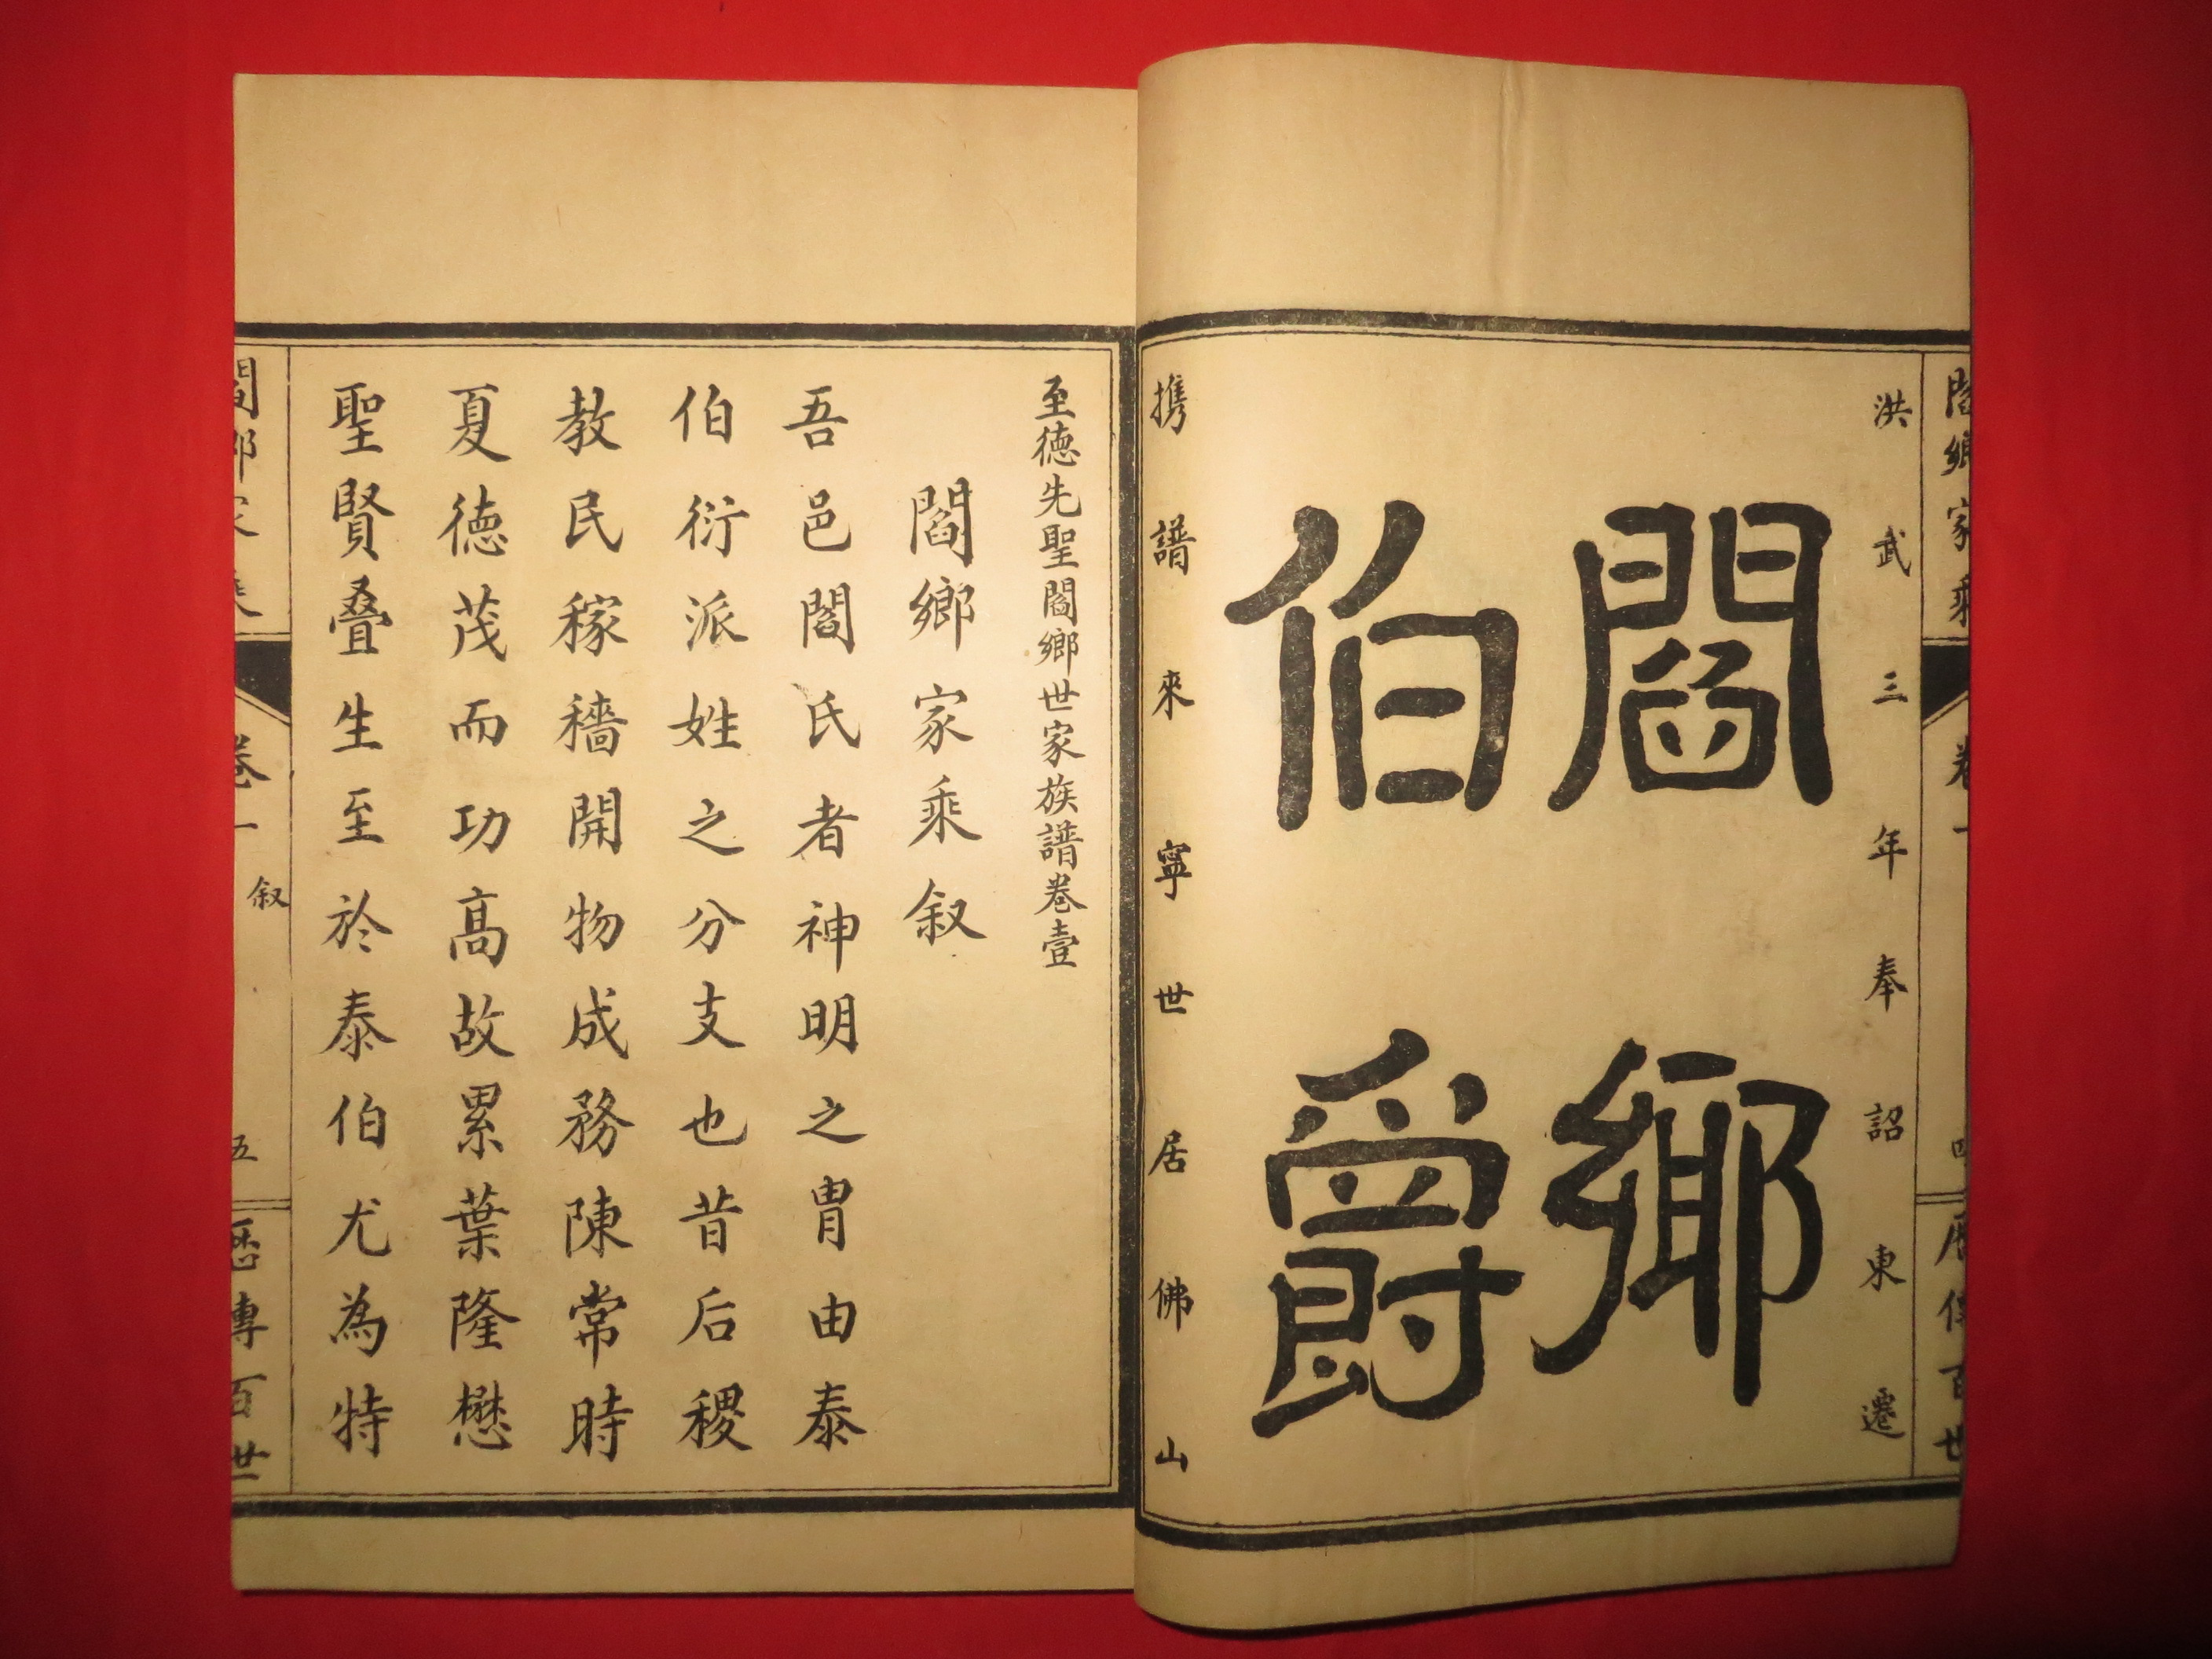 閻鄉家乘
卷一
百世
洪武三年奉詔東遷
閻鄉
伯爵
攜譜來寧世居佛山
至德先聖閻鄉世家族譜卷壹
閻鄉家乘叙
吾邑閻氏者神明之胄由泰
伯衍派姓之分支也昔后稷
教民稼穡開物成務陳常時
夏德茂而功高故累葉隆懋
聖賢叠生至於泰伯尤為特
閻鄉家乘
卷一
叙
五
歷傳百世